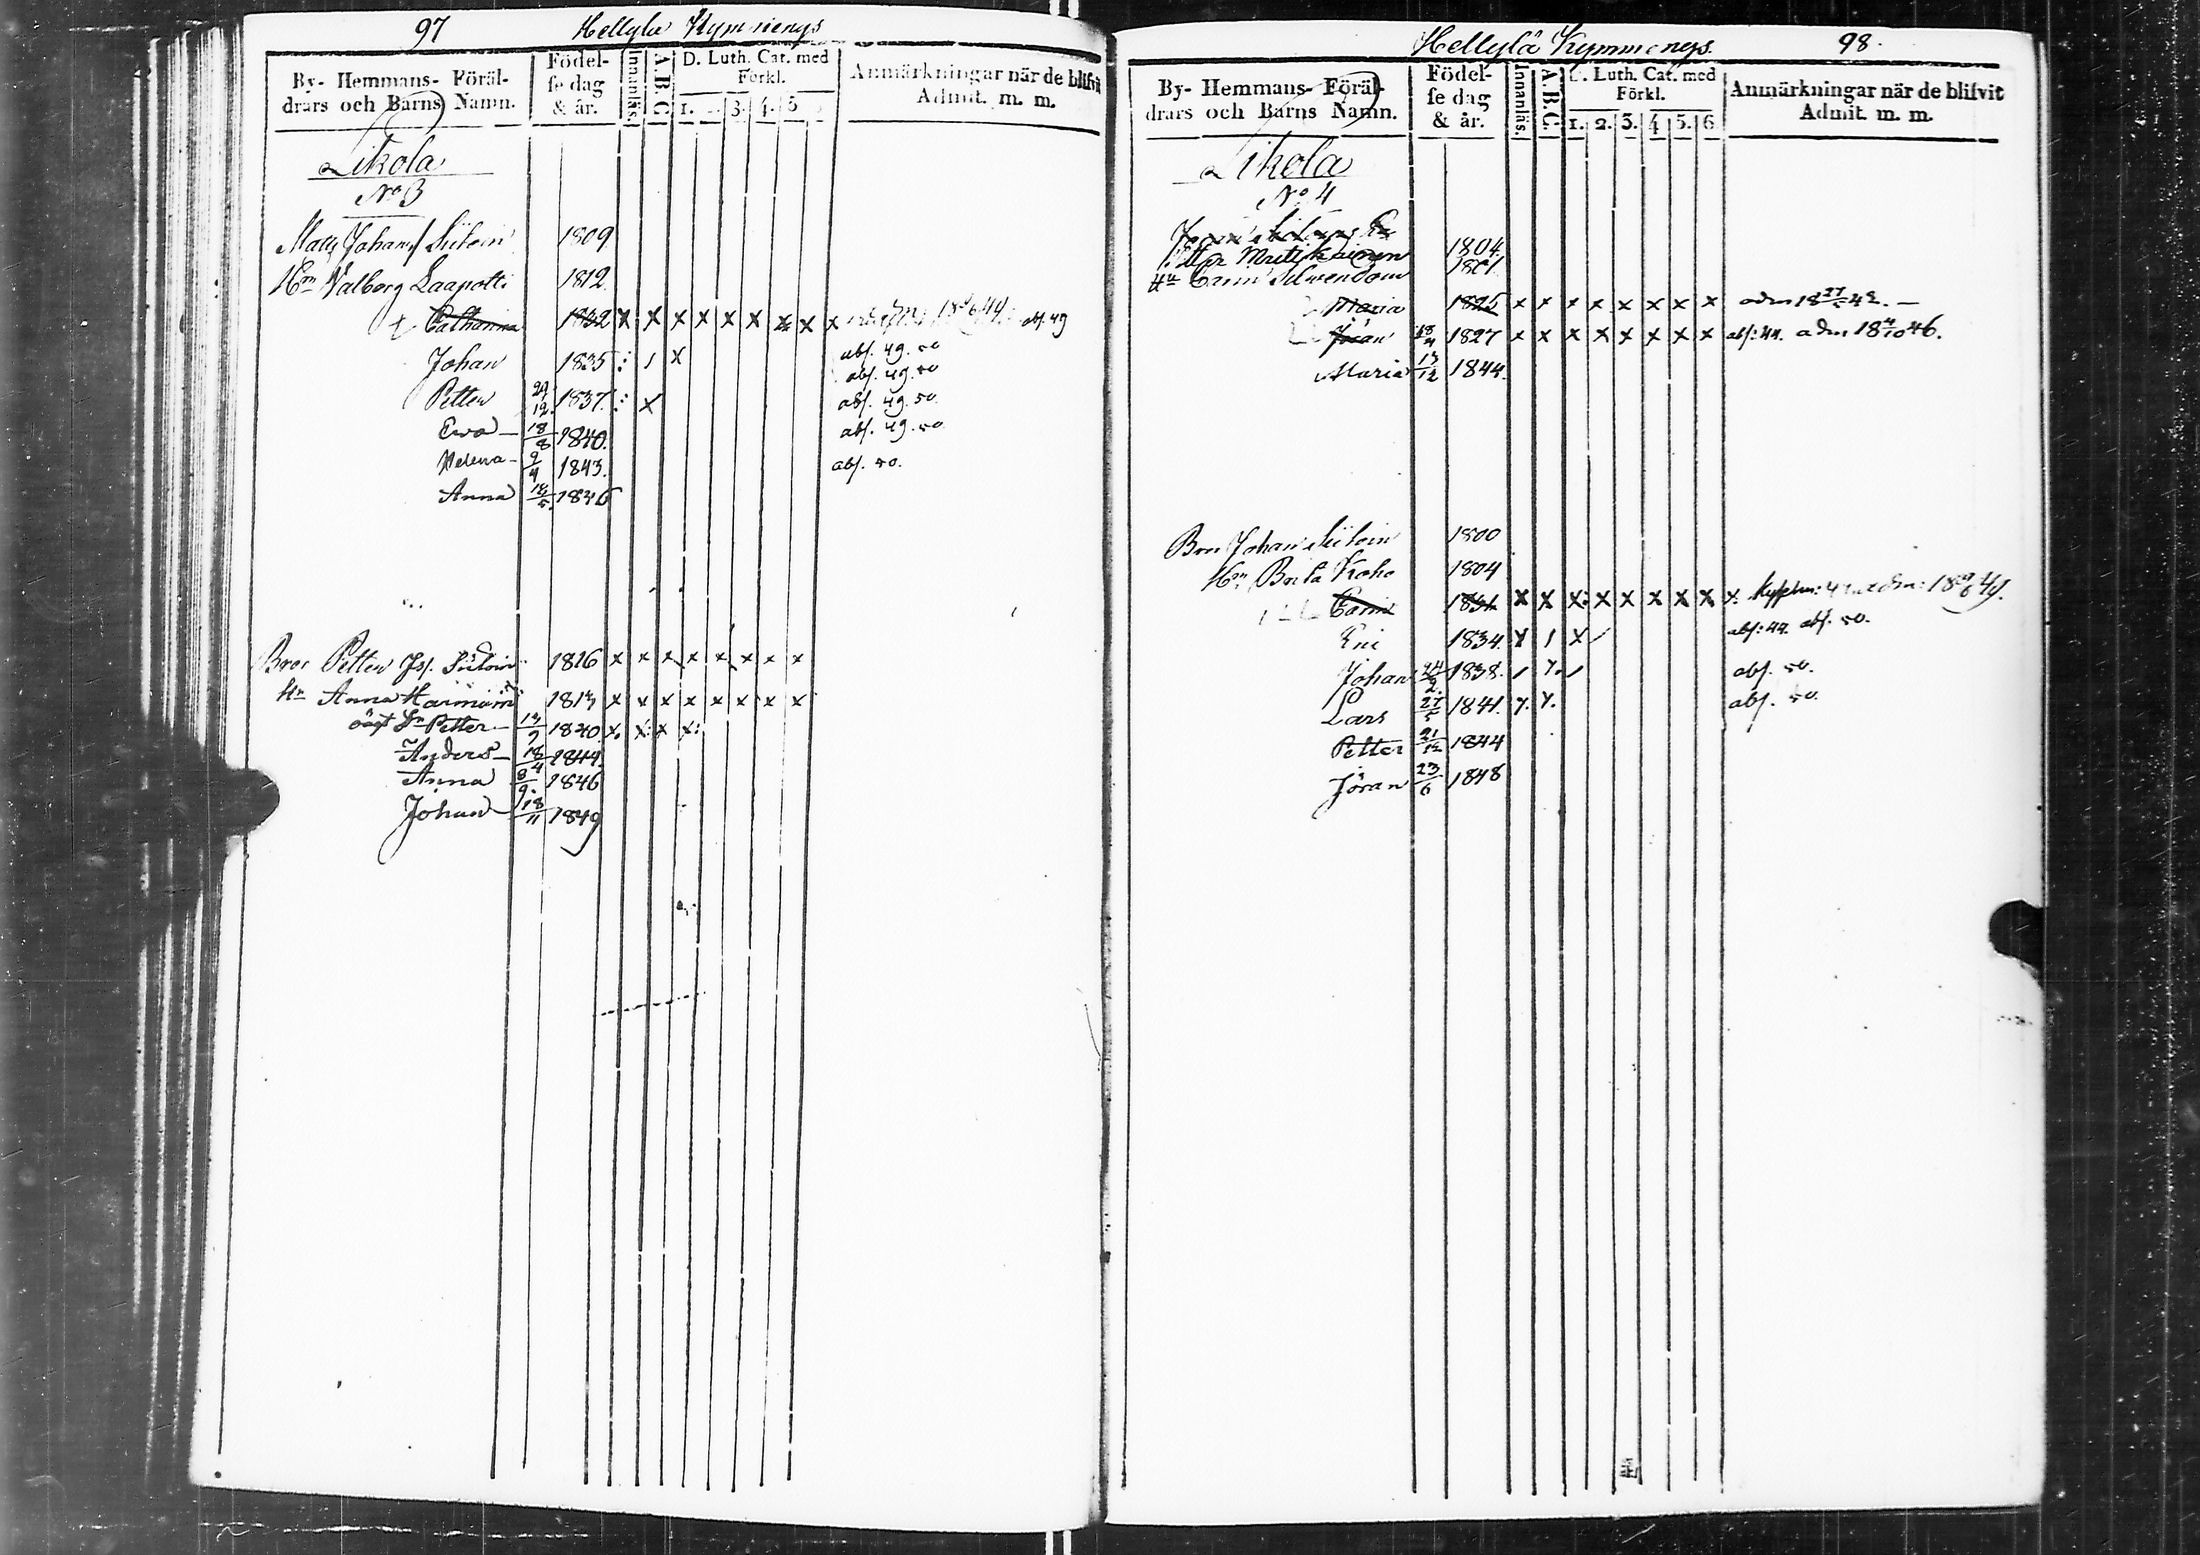 97 Hellylä Kymmenys
By- Hemmans- Föräldrars och Barns Namn. Födelse dag & år. Innanläs. A.B.C. D. Luth. Cat. med Förkl. 1. 3. 4. 5 Anmärkningar när de blifvit Admit. m. m.
Likola
No 3
Matts Johans Siitoin 1809
Hn Valborg Laapotti 1812
Catharina 1832 x x x x x x x x abs. 49
Johan 1835 abs. 49. 50
Petter 29/12 1837 abs. 49. 50
Ewa 18/8 1840. abs. 49. 50
Helena 9/4 1843. abs. 49. 50
Anna 1846 abs. 50.
Bror Petter Siitoin 1816 x x x x x x x x
Hn Anna 1813 x x x x x x x x
Sn Petter 13/7 1840 x x x x
Anders 18/4 1844
Anna 8/9 1846
Johan 18/11 1849
Hellylä Kymmenys. 98.
By- Hemmans- Föräldrars och Barns Namn. Födelse dag & år. Innanläs. A.B.C. D. Luth. Cat. med Förkl. 1. 2. 3. 4 5. 6 Anmärkningar när de blifvit Admit. m. m.
Likola
No 4
Petter 1804
Hn Carin 1801
Maria 1825 x x x x x x x x adm 18 27/5 42.
Jöran 18/4 1827 x x x x x x x x abs: 44. adm 18 4/10 46.
Maria 13/12 1844.
Bror Johan Siitoin 1800
Hn Brita Koho 1804
Carin 1831 x x x x x x x x x
1834. x 1 x abs: 44. abs. 50.
Johan 24/2 1838. abs. 50.
Lars 27/5 1841. abs. 50.
Petter 21/12 1844
Jöran 23/6 1848